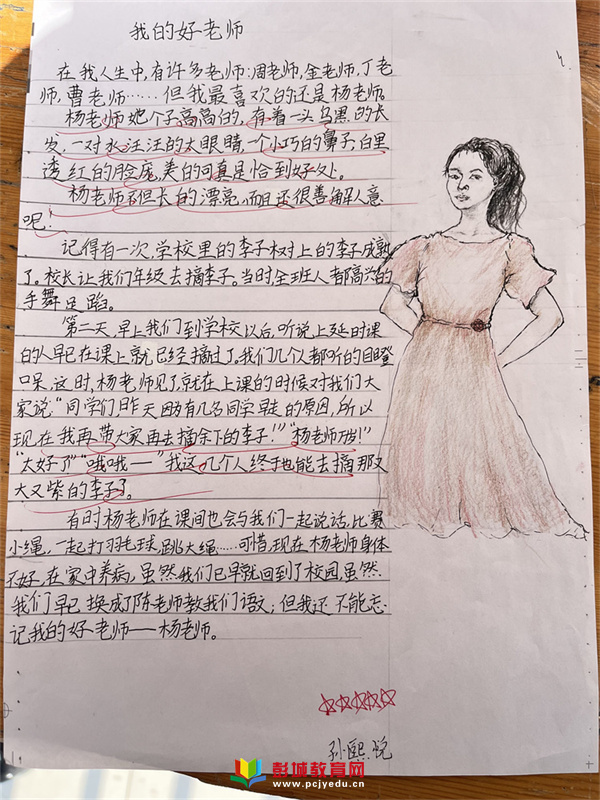 我的好老师
在我人生中,有许多老师:周老师,金老师,丁老
师,曹老师……但我最喜欢的还是杨老师。
杨老师她个子高高的,有着一头乌黑的长
发,一对水汪汪的大眼睛,一个小巧的鼻子,白里
透红的脸庞,美的可真是恰到好处。
杨老师不但长的漂亮,而且还很善解人意
呢!
记得有一次,学校里的李子树上的李子成熟
了。校长让我们年级去摘李子。当时全班人都高兴的
手舞足蹈。
第二天,早上我们到学校以后,听说上延时课
的人早已在课上就已经摘过了。我们几个人都听的目瞪
口呆,这时,杨老师见了就在上课的时候对我们大
家说:“同学们昨天因为有几名同学早走的原因,所以
现在我再带大家再去摘余下的李子!”“杨老师万岁!”
“太好了”“哦哦——”我这几个人终于也能去摘那又
大又紫的李子了。
有时杨老师在课间也会与我们一起说话,比赛
小绳,一起打羽毛球,跳大绳……可惜,现在杨老师身体
不好,在家中养病,虽然我们已早就回到了校园虽然
我们早已换成了陈老师教我们语文;但我还不能忘
记我的好老师——杨老师。
孙熙悦
彭城教育网
www.pcjyedu.cn